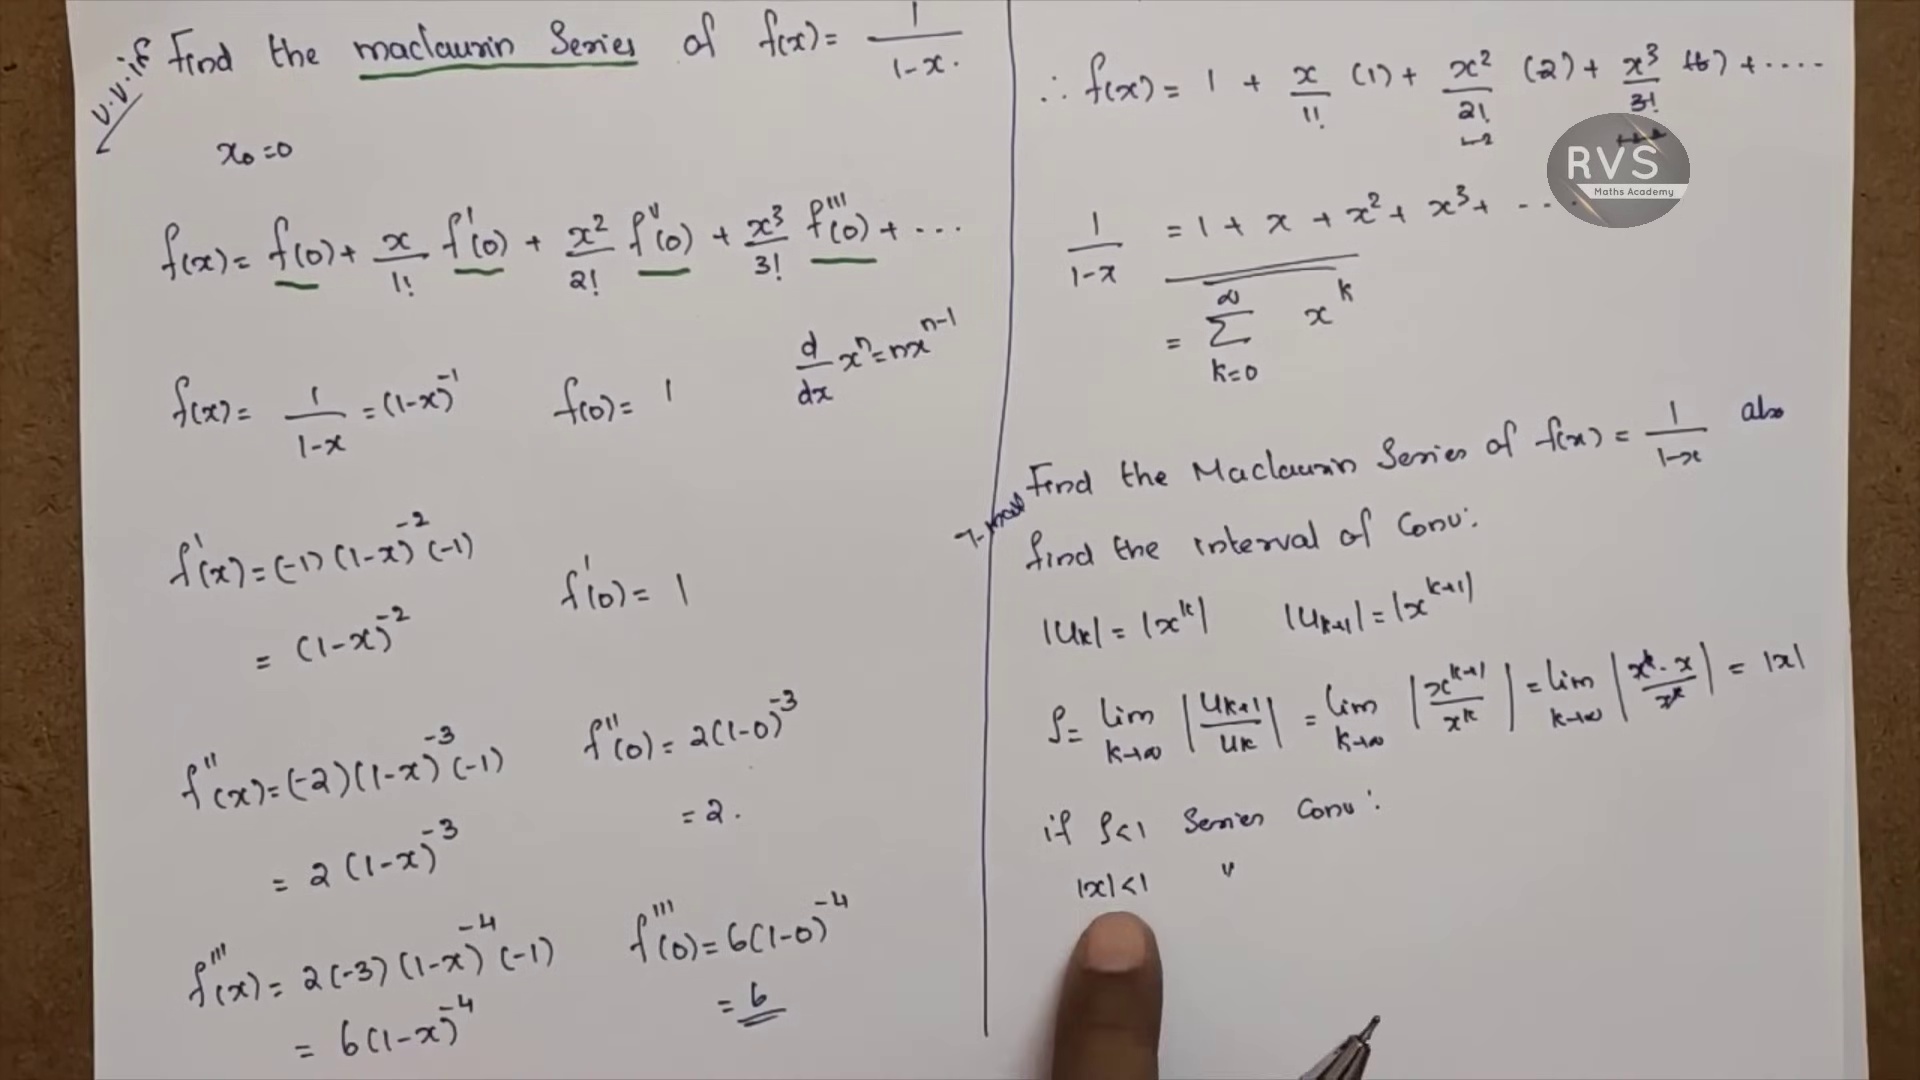 v.v.if Find the maclaurin Series of f(x) = 1/(1-x).
x₀=0
f(x) = f(0) + x/1! f'(0) + x²/2! f''(0) + x³/3! f'''(0) + ...
d/dx xⁿ = nxⁿ⁻¹
f(x) = 1/(1-x) = (1-x)⁻¹ f(0) = 1
f'(x) = (-1)(1-x)⁻²(-1)
= (1-x)⁻² f'(0) = 1
f''(x) = (-2)(1-x)⁻³(-1) f''(0) = 2(1-0)⁻³
= 2(1-x)⁻³ = 2.
f'''(x) = 2(-3)(1-x)⁻⁴(-1) f'''(0) = 6(1-0)⁻⁴
= 6(1-x)⁻⁴ = 6
∴ f(x) = 1 + x/1! (1) + x²/2! (2) + x³/3! (6) + ....
RVS
Maths Academy
1/(1-x) = 1 + x + x² + x³ + ...
= ∑ₖ₌₀^∞ xᵏ
Find the Maclaurin Series of f(x) = 1/(1-x) also
find the interval of Conv:
|uₖ| = |xᵏ| |uₖ₊₁| = |xᵏ⁺¹|
ρ = lim k→∞ |uₖ₊₁/uₖ| = lim k→∞ |xᵏ⁺¹/xᵏ| = lim k→∞ |xᵏ·x/xᵏ| = |x|
if ρ<1 Series Conv:
|x|<1 "